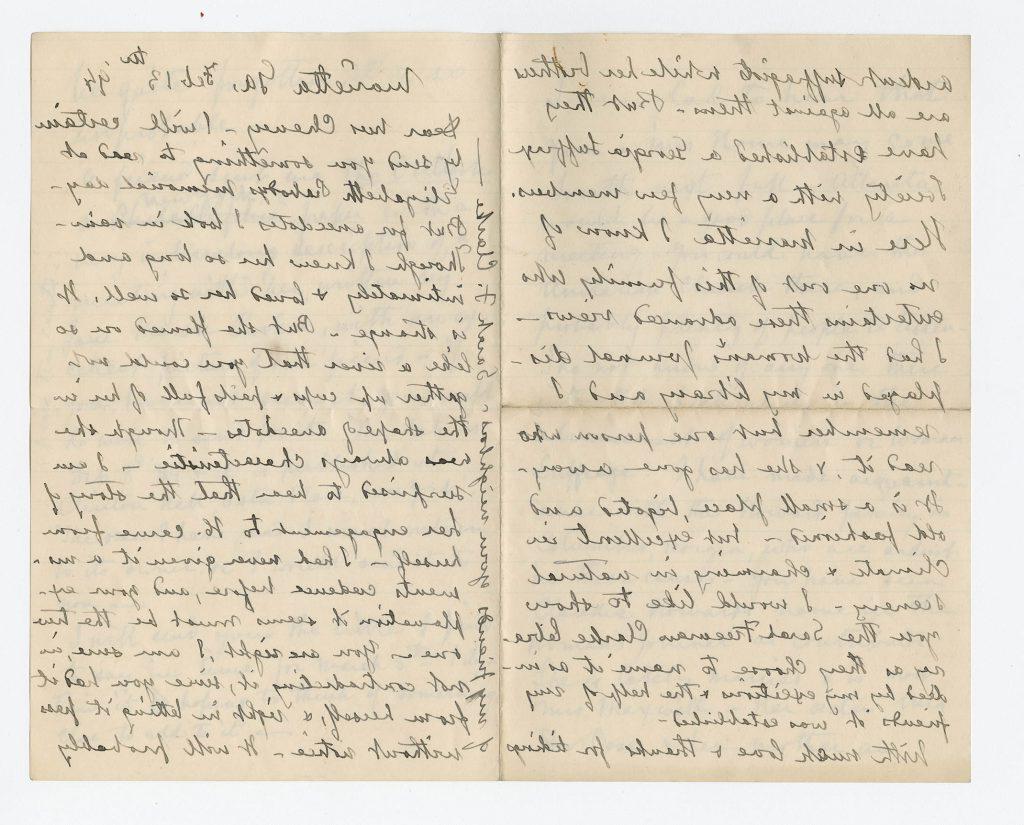 Marietta Ga, Feb 13th '94
Dear Mrs Cheney - I will certain
ly send you something to read at
Elizabeth Peabody's memorial day -
But for anecdotes I look in vain -
Though I knew her so long and
intimately & loved her so well, it
is strange - But she flowed on so
like a river that you could not
gather up cups & pails full of her in
the shape of anecdotes - Though she
was always characteristic - I am
surprised to hear that the story of
her engagement to H. came from
herself - I had never given it a mo-
ments credence before, and your ex-
planation it seems must be the true
one - You are right, I am sure, in
not contradicting it, since you had it
from herself, & right in letting it pass
without notice - It will probably
ardent suffragists while her brothers
are all against them - But they
have established a Georgia Suffrage
Society with a very few members.
Here in Marietta I know of
no one out of this family who
entertains these advanced views -
I had the Woman's Journal dis-
played in my library and I
remember but one person who
read it, & she has gone away -
It is a small place, bigoted and
old fashioned - but excellent in
climate & charming in natural
scenery - I would like to show
you the Sarah Freeman Clarke Libra-
ry as they choose to name it as in-
deed by my exertions & the help of my
friends it was established -
With much love & thanks for liking
my friends your neighbors, Sarah F. Clarke